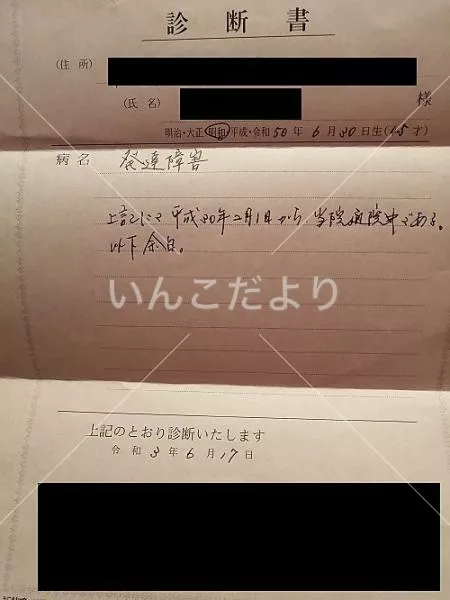 診断書
(住 所)
(氏 名) 様
明治・大正・昭和・平成・令和 50年 6月 30日生(45才)
病 名 発達障害
上記にて平成30年2月1日から、当院通院中である。
以下余白。
いんこだより
上記のとおり診断いたします
令 和 3 年 6 月 17 日